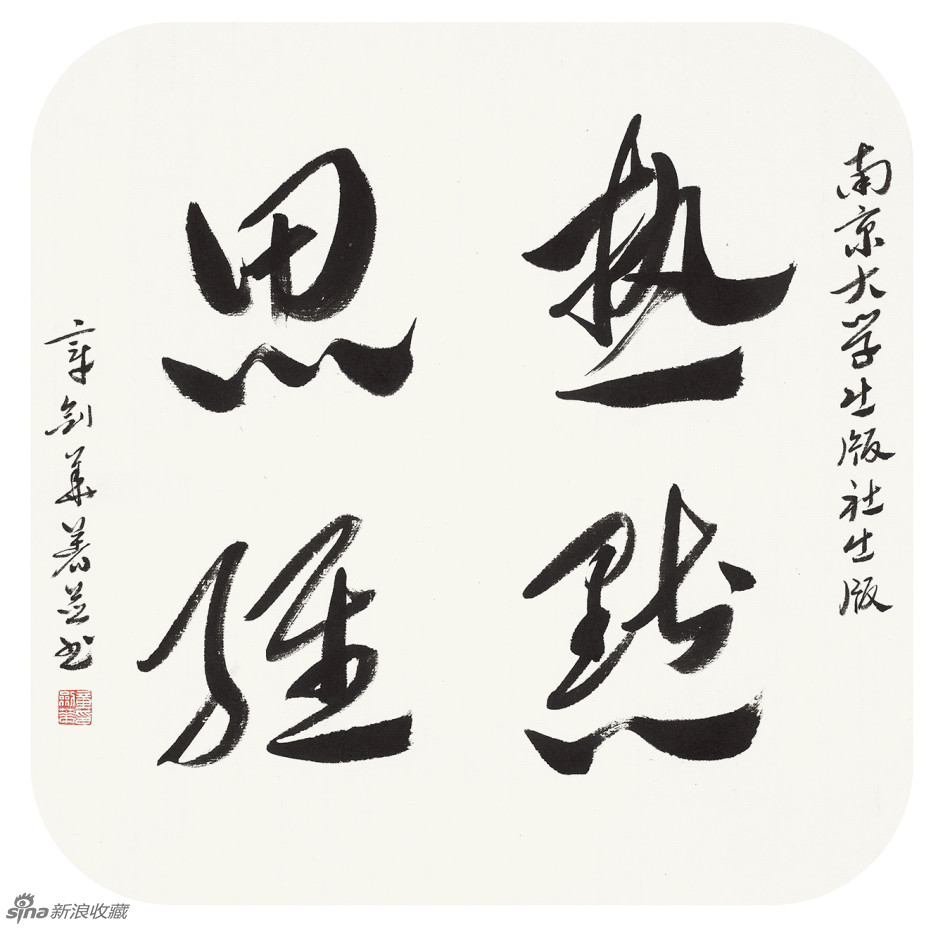 南京大学出版社出版
热點
思維
章剑華著並书
sina新浪收藏